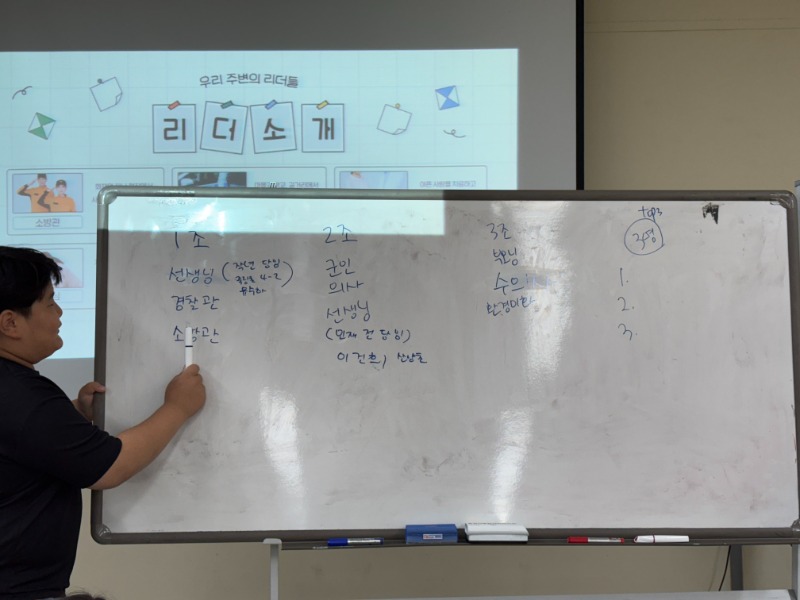 우리 주변의 리더들
리더소개
소방관
1조
선생님 (작년 담임
4-2
경찰관
소방관
2조
군인
의사
선생님
(현재 전 담임)
이건흐,
3조
부모님
수의
환경미화
top3
3명
1.
2.
3.